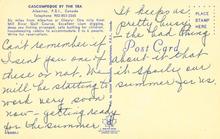 CASCUMPEQUE BY THE SEA
Alberton, P.E.I., Canada
Telephone 902-853-
Can't remember if
I sent you one of
these or not. We
will be starting to
work very soon
now - getting ready
for the summer.
It keeps us
pretty busy -
- the bad thing
Post Card
about it that
it spoils our
summer for us.
PLACE
STAMP
HERE